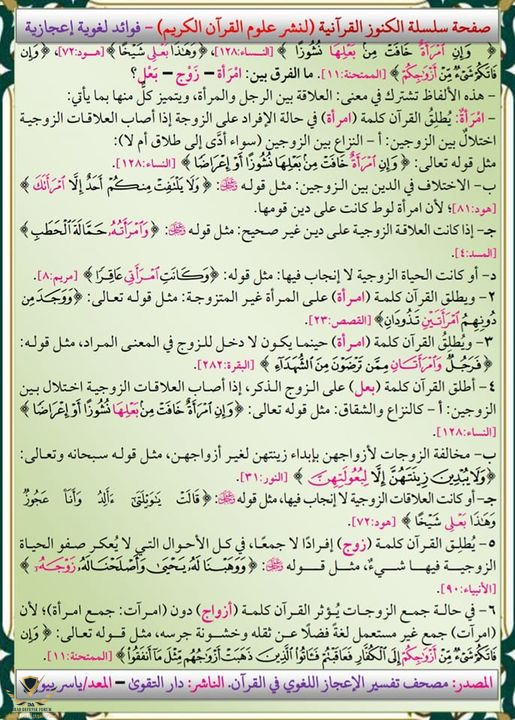 صفحة سلسلة الكنوز القرآنية (لنشر علوم القرآن الكريم) – فوائد لغوية إعجازية
﴿ وَإِنِ ٱمْرَأَةٌ خَافَتْ مِنۢ بَعْلِهَا نُشُوزًا ﴾ [النساء:١٢٨]، ﴿وَهَٰذَا بَعْلِى شَيْخًا﴾ [هود:٧٢]، ﴿وَإِن
فَاتَكُمْ شَىْءٌ مِّنْ أَزْوَٰجِكُمْ﴾ [الممتحنة:١١]. ما الفرق بين: امْرَأة – زَوْج – بَعْل؟
- هذه الألفاظ تشترك في معنى: العلاقة بين الرجل والمرأة، ويتميز كلٌّ منها بما يأتي:
- امْرَأةٌ: يُطلِقُ القرآن كلمة (امرأة) في حالة الإفراد على الزوجة إذا أصاب العلاقات الزوجية
اختلالٌ بين الزوجين: أ - النزاع بين الزوجين (سواء أدَّى إلى طلاق أم لا):
مثل قوله تعالى: ﴿ وَإِنِ ٱمْرَأَةٌ خَافَتْ مِنۢ بَعْلِهَا نُشُوزًا أَوْ إِعْرَاضًا ﴾ [النساء:١٢٨].
ب- الاختلاف في الدين بين الزوجين: مثل قوله ﷻ: ﴿ وَلَا يَلْتَفِتْ مِنكُمْ أَحَدٌ إِلَّا ٱمْرَأَتَكَ ﴾
[هود:٨١]؛ لأن امرأة لوط كانت على دين قومها.
جـ- إذا كانت العلاقة الزوجية على دين غير صحيح: مثل قوله ﷻ: ﴿ وَٱمْرَأَتُهُۥ حَمَّالَةَ ٱلْحَطَبِ ﴾
[المسد:٤].
د- أو كانت الحياة الزوجية لا إنجاب فيها: مثل قوله: ﴿وَكَانَتِ ٱمْرَأَتِى عَاقِرًا ﴾ [مريم:٨].
٢- ويطلق القرآن كلمة (امرأة) على المرأة غير المتزوجة: مثل قوله تعالى: ﴿وَوَجَدَ مِن
دُونِهِمُ ٱمْرَأَتَيْنِ تَذُودَانِ﴾ [القصص:٢٣].
٣- ويُطلِقُ القرآن كلمة (امرأة) حينما يكون لا دخل للزوج في المعنى المراد، مثل قوله:
﴿فَرَجُلٌ وَٱمْرَأَتَانِ مِمَّن تَرْضَوْنَ مِنَ ٱلشُّهَدَآءِ ﴾ [البقرة:٢٨٢].
٤- أطلق القرآن كلمة (بعل) على الزوج الذكر، إذا أصاب العلاقات الزوجية اختلال بين
الزوجين: أ - كالنزاع والشقاق: مثل قوله تعالى: ﴿وَإِنِ ٱمْرَأَةٌ خَافَتْ مِنۢ بَعْلِهَا نُشُوزًا أَوْ إِعْرَاضًا ﴾
[النساء:١٢٨].
ب- مخالفة الزوجات لأزواجهن بإبداء زينتهن لغير أزواجهن، مثل قوله سبحانه وتعالى:
﴿وَلَا يُبْدِينَ زِينَتَهُنَّ إِلَّا لِبُعُولَتِهِنَّ﴾ [النور:٣١].
جـ- أو كانت العلاقات الزوجية لا إنجاب فيها، مثل قوله ﷻ: ﴿ قَالَتْ يَٰوَيْلَتَىٰٓ ءَأَلِدُ وَأَنَا۠ عَجُوزٌ
وَهَٰذَا بَعْلِى شَيْخًا ﴾ [هود:٧٢].
٥- يُطلِق القرآن كلمة (زوج) إفرادًا لا جمعًا، في كل الأحوال التي لا يُعكر صفو الحياة
الزوجية فيها شيءٌ، مثل قوله ﷻ: ﴿ وَوَهَبْنَا لَهُۥ يَحْيَىٰ وَأَصْلَحْنَا لَهُۥ زَوْجَهُۥٓ ﴾
[الأنبياء:٩٠].
٦- في حالة جمع الزوجات يُؤثر القرآن كلمة (أزواج) دون (امرآت: جمع امرأة)؛ لأن
(امرآت) جمع غير مستعمل لغةً فضلًا عن ثقله وخشونة جرسه، مثل قوله تعالى: ﴿ وَإِن
فَاتَكُمْ شَىْءٌ مِّنْ أَزْوَٰجِكُمْ إِلَى ٱلْكُفَّارِ فَعَاقَبْتُمْ فَـَٔاتُوا۟ ٱلَّذِينَ ذَهَبَتْ أَزْوَٰجُهُم مِّثْلَ مَآ أَنفَقُوا۟ ﴾ [الممتحنة:١١].
المصدر: مصحف تفسير الإعجاز اللغوي في القرآن. الناشر: دار التقوى – المعد/ياسر بيومي